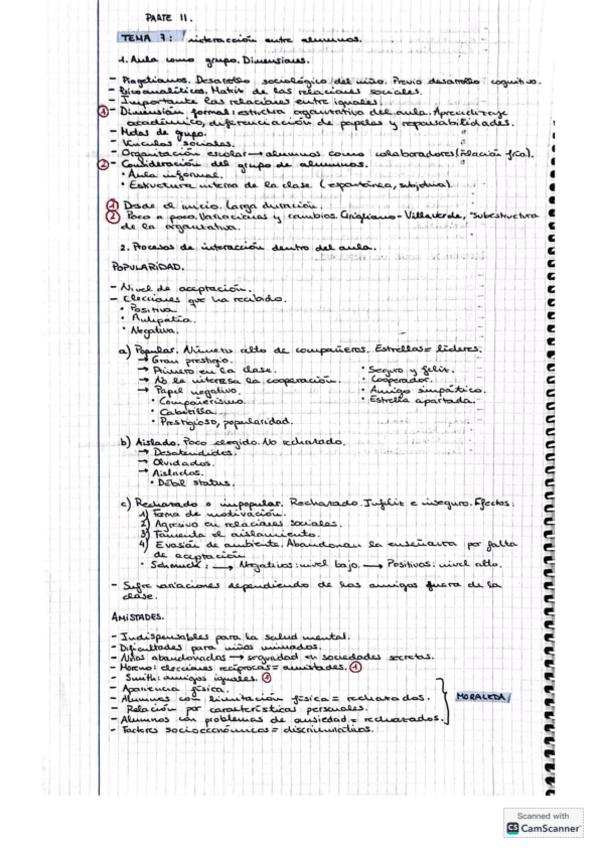 PARTE II.
TEMA 7: interacción entre alumnos.
1. Aula como grupo. Dimensiones.
- Piagetianos. Desarrollo sociológico del niño. Previo desarrollo cognitivo.
- Psicoanalíticos. Matriz de las relaciones sociales.
- Importante las relaciones entre iguales.
① - Dimensión formal: estructura organizativa del aula. Aprendizaje
académico, diferenciación de papeles y responsabilidades.
- Metas de grupo.
- Vínculos sociales.
- Organización escolar → alumnos como colaboradores (relación fría).
② - Consideración del grupo de alumnos.
• Aula informal.
• Estructura interna de la clase (espontánea, subjetiva).
① Desde el inicio. Larga duración.
② Poco a poco. Variaciones y cambios. Cirigliano - Villaverde, "Subestructura
de la organizativa.
2. Procesos de interacción dentro del aula.
POPULARIDAD.
- Nivel de aceptación.
- Elecciones que ha recibido.
• Positiva.
• Antipatía.
• Negativa.
a) Popular. Número alto de compañeros. Estrellas = líderes.
→ Gran prestigio.
→ Primero en la clase. • Seguro y feliz.
→ No le interesa la cooperación. • Cooperador.
→ Papel negativo. • Amigo simpático.
• Compañerismo. • Estrella apartada.
• Cabecilla.
• Prestigioso, popularidad.
b) Aislado. Poco elegido. No rechazado.
→ Desatendidos.
→ Olvidados.
→ Aislados.
• Débil status.
c) Rechazado o impopular. Rechazado. Infeliz e inseguro. Efectos:
1) Forma de motivación.
2) Agresivo en relaciones sociales.
3) Fomenta el aislamiento.
4) Evasión de ambiente. Abandonan la enseñanza por falta
de aceptación
• Schmuck: → Negativos: nivel bajo. → Positivos: nivel alto.
- Sufre variaciones dependiendo de los amigos fuera de la
clase.
AMISTADES.
- Indispensables para la salud mental.
- Dificultades para niños mimados.
- Niños abandonados → seguridad en sociedades secretas.
- Moreno: elecciones recíprocas = amistades. ①
- Smith: amigos iguales. ①
- Apariencia física.
- Alumnos con limitación física = rechazados.
- Relación por características personales.
- Alumnos con problemas de ansiedad = rechazados.
- Factores socioeconómicos = discriminativos.
MORALEDA
Scanned with
CS CamScanner